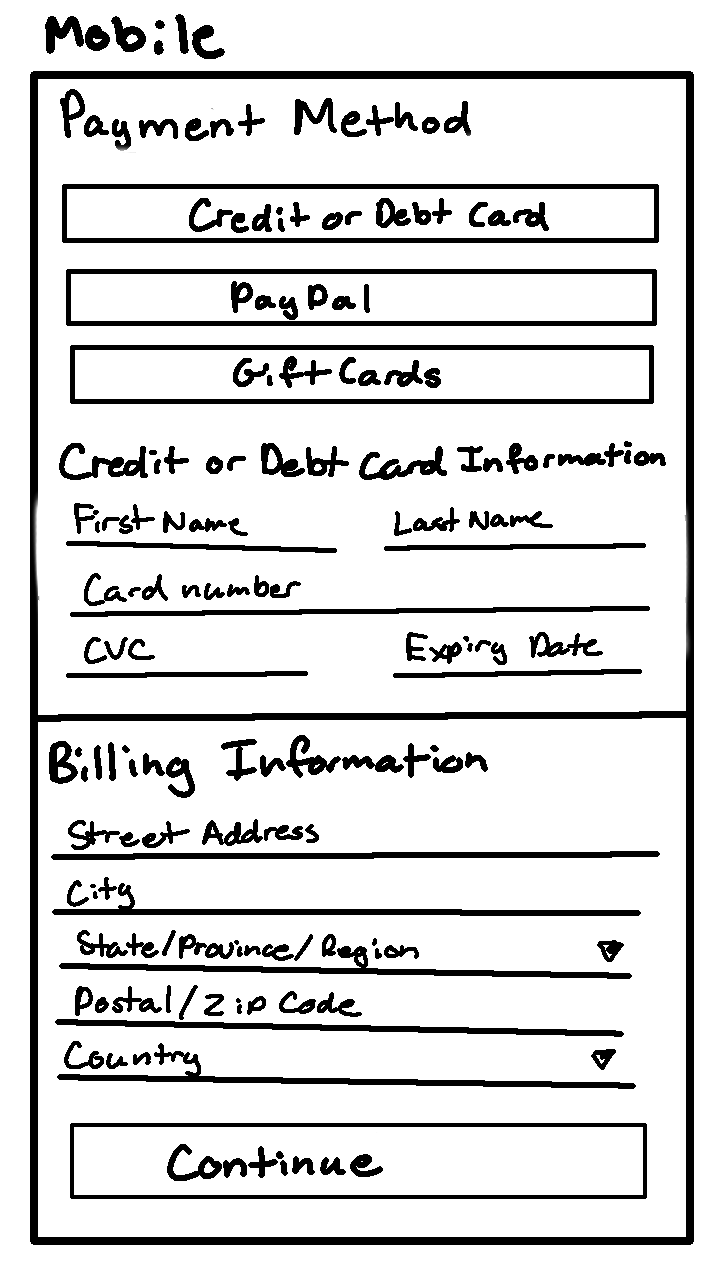 Mobile
Payment Method
Credit or Debt Card
PayPal
Gift Cards
Credit or Debt Card Information
First Name Last Name
Card number
CVC Expiry Date
Billing Information
Street Address
City
State/Province/Region
Postal/Zip Code
Country
Continue